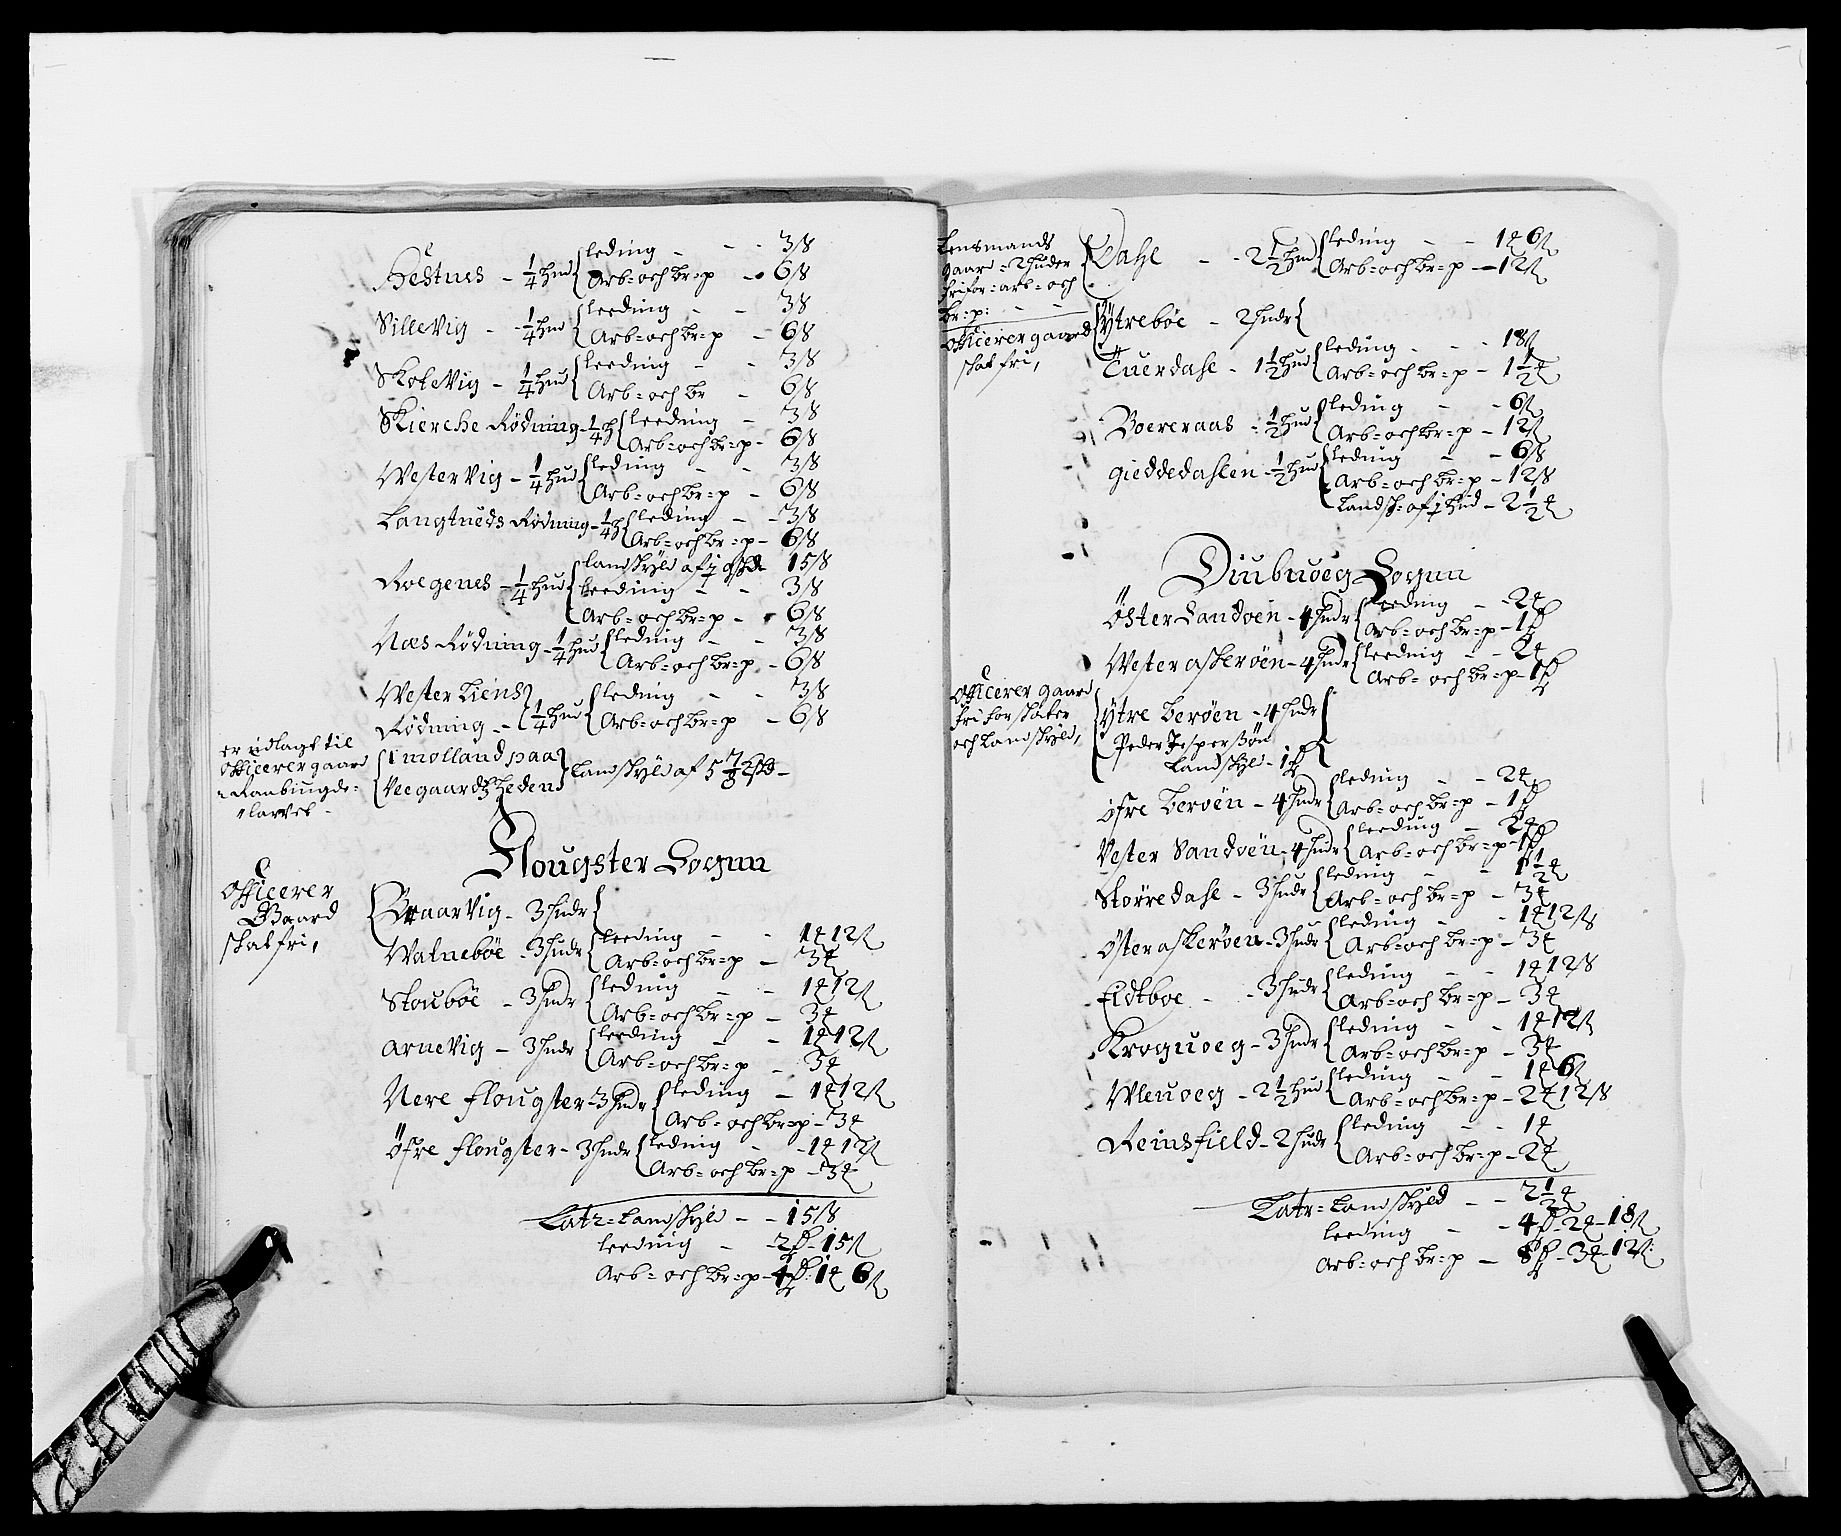 Hestnes - 1/4 hud { leding - - - 3 ß
Arb= och br=p - 6 ß
Sillevig - 1/4 hud { leeding - - 3 ß
Arb= och br=p - 6 ß
Skolevig - 1/4 hud { leeding - - 3 ß
Arb= och br - 6 ß
Skierche Rødning - 1/4 h { leeding - 3 ß
Arb= och br=p - 6 ß
Westervig - 1/4 hud { leding - - 3 ß
Arb= och br=p - 6 ß
Langtneds Rødning - 1/4 h { leding - - 3 ß
Arb= och br=p - 6 ß
Roegenes - 1/4 hud { landskyld af 15 ß
leeding - - 3 ß
Arb= och br=p - 6 ß
Næs Rødning - 1/4 hud { leding - - 3 ß
Arb= och br=p - 6 ß
Wester Liens } leding - - 3 ß
Rødning - { 1/4 hud { Arb= och br=p - 6 ß
er udlagt til
officerer gaard
i Raabiugde=
laget -
{ i molland paa }
{ Veegaardhheden } Landskyld af 5 7/8
Flougster Sogun
Officerer
Gaard
skat fri,
{ Braarvig - 3 hudr {
Watnebøe - 3 hudr { leeding - - 1 12 ß
Arb= och br=p - 3
Stoubøe - 3 hudr { leding - - 1 12 ß
Arb= och br=p - 3
Arnevig - 3 hudr { leeding - - 1 12 ß
Arb= och br=p - 3
Nere flougster - 3 hudr { leding - 1 12 ß
Arb= och br=p - 3
Öfre flougster - 3 hudr { leding - - 1 12 ß
Arb= och br=p - 3
Latr= Landskyld - - 15 ß
leeding - - 2 - 15 ß
Arb= och br=p - 4 1 6 ß
Lensmands
gaard = 2 huder
fri for = arb= och
br=p: - -
{ Dahl - - 2 1/2 hud { leding - - 1 6 ß
Arb= och br=p - 12 ß
officerer gaard
skat fri,
{ Ytrebøe - 2 hudr {
Tuerdahl - 1 1/2 hud { leding - - - 18 ß
Arb= och br=p - 1 1/2
Boereraas - 1/2 hud { leding - - 6 ß
Arb= och br=p - 12 ß
gieddedahlen - 1/2 hud { leding - - 6 ß
Arb= och br=p - 12 ß
Landsk= af 1 hud - 2 1/2
Diubuoeg Sogun
Öster Sandøen - 4 hudr { leeding - - 2
Arb= och br=p - 1
Wester askerøen - 4 hudr { leednig - - 2
Arb= och br=p - 1
Officerer gaard
fri for skater
och Landskyld,
{ Ytre berøen - 4 hudr {
Peder Jesperssøn
Landskyld - 1
öfre berøen - 4 hudr { leding - - 2
Arb= och br=p - 1
Vester Sandøen - 4 hudr { leeding - 2
Arb= och br=p - 1
Størredahl - 3 hudr { leding - - 1 1/2
Arb= och br=p - 3
öster askerøen - 3 hudr { leding - - 1 12 ß
Arb= och br=p - 3
Eidtboe - - 3 hudr { leding - - 1 12 ß
Arb= och br=p - 3
Kroguoeg - 3 hudr { leding - - 1 12 ß
Arb= och br=p - 3
Wleuoeg - 2 1/2 hud { leding - - 1 6 ß
Arb= och br=p - 2 12 ß
Reinsfield - 2 hudr { leding - - 1
Arb= och br=p - 2
Latr= Landskyld - - 2 1/2
leeding - - 4 - 2 - 18 ß
Arb= och br=p - 8 - 3 - 12 ß: